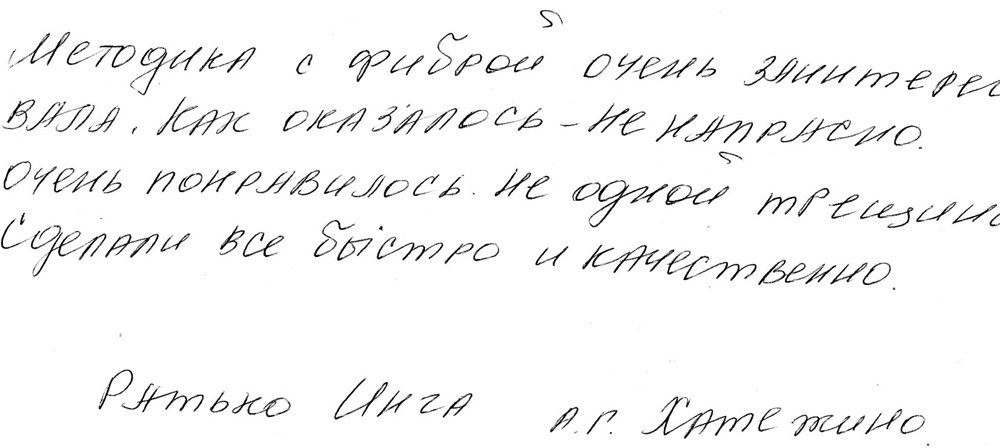 Методика с фиброй очень заинтерес
вала. Как оказалось – не напрасно.
Очень понравилось. Не одной трещин
Сделали все быстро и качественно.
Ратько Инга а.г. Хатежино